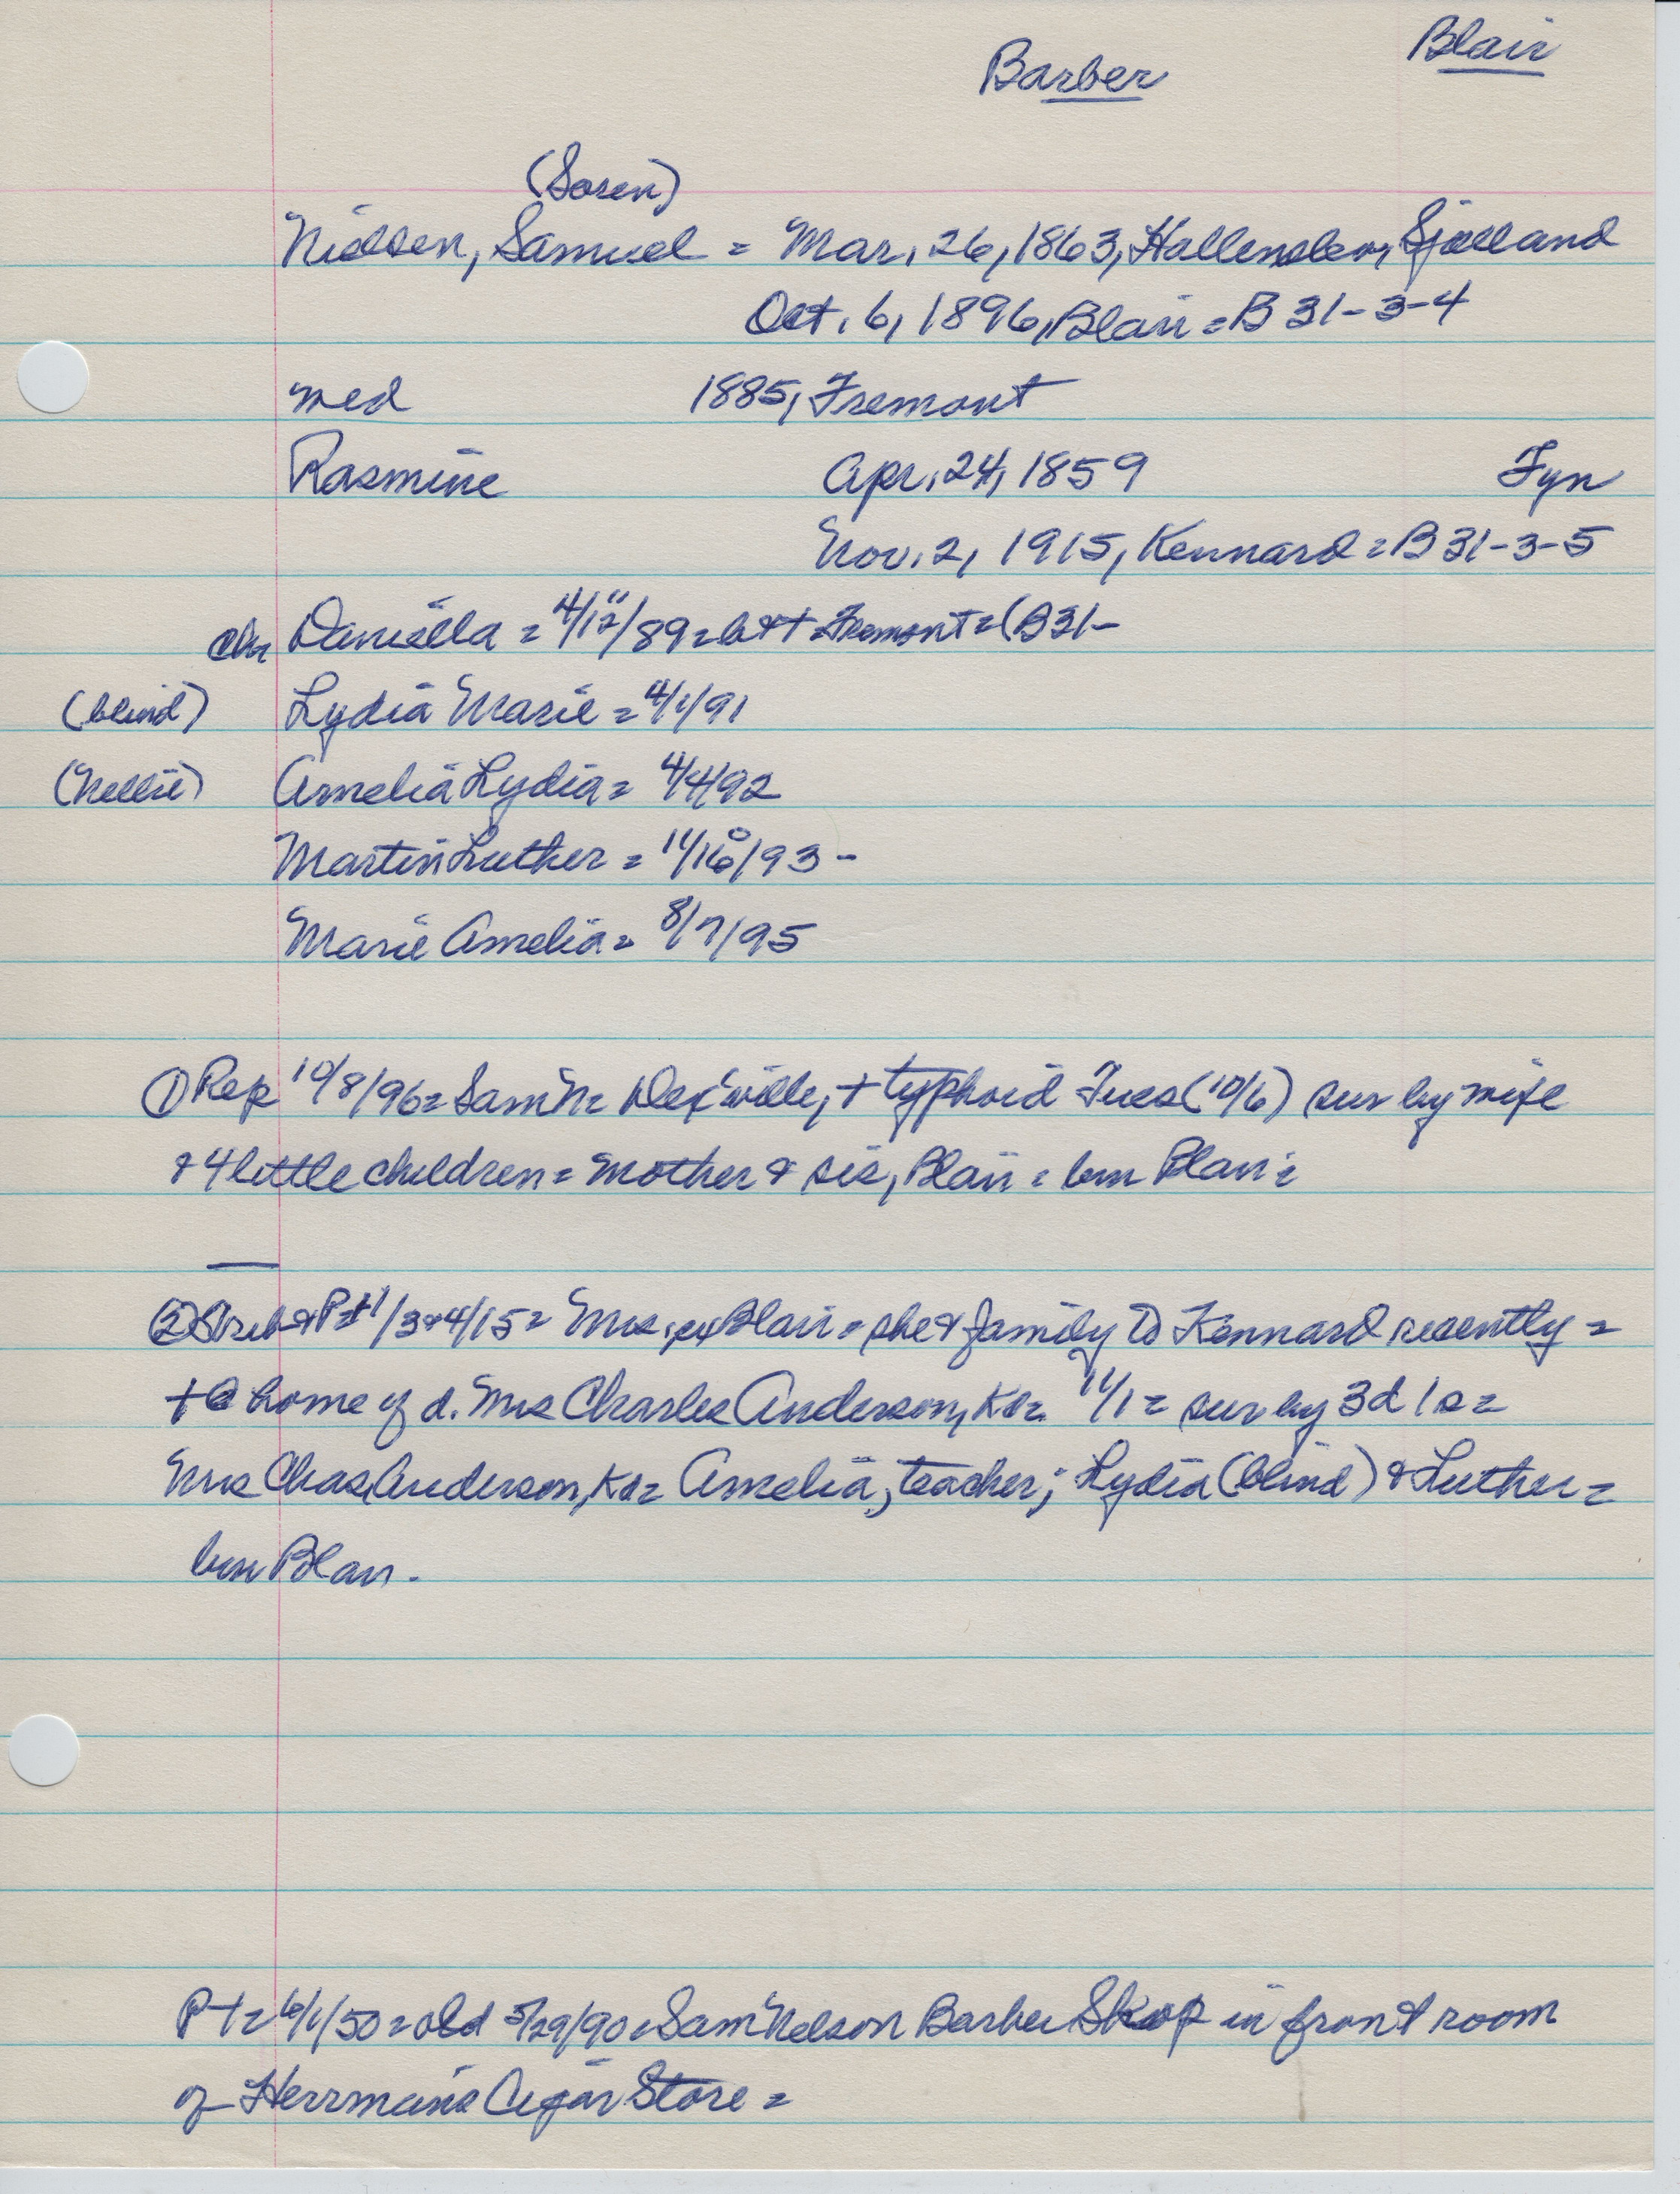 Barber Blair
(Soren)
Nielsen, Samuel = Mar. 26, 1863, Hallenslev, Sjælland
Oct. 6, 1896, Blair = B 31-3-4
med 1885, Fremont
Rasmine Apr. 24, 1859 Fyn
Nov. 2, 1915, Kennard = B 31-3-5
chr Daniella = 4/12/89 = b&+ Fremont = (B31-
(blind) Lydia Marie = 4/1/91
(Nellie) Amelia Lydia = 4/4/92
Martin Luther = 11/16/93 -
Marie Amelia = 8/7/95
① Rep 10/8/96 = Sam N = + typhoid Tues (10/6) sur by wife
& 4 little children = mother & sis, Blair = bur Blair =
② & Pt 11/3&4/15 = Mrs, ex Blair = she & family to Kennard recently =
+ @ home of d. Mrs Charles Anderson, Kd = 11/1 = sur by 3d 1s =
Mrs Chas Anderson, Kd = Amelia, teacher; Lydia (blind) & Luther =
bur Blair.
Pt = 6/1/50 = old 5/29/90 = Sam Nelson Barber Shop in front room
of Herrman's Cigar Store =